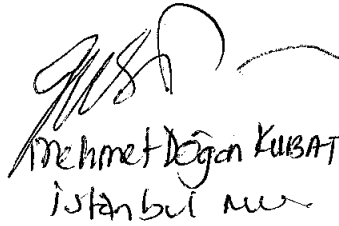 Mehmet Doğan KUBAT
İstanbul